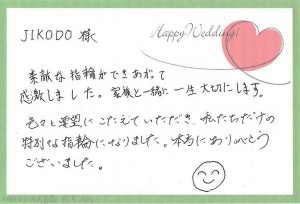 JIKODO 様
Happy Wedding!
素敵な指輪ができあがって
感激しました。家族と一緒に一生大切にします。
色々と要望にこたえていただき、私たちだけの
特別な指輪になりました。本当にありがとう
ございました。